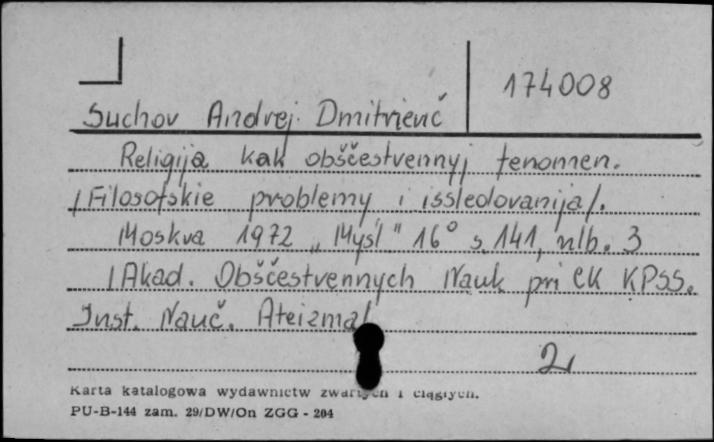 174008
Suchov Andrej Dmitrievič
Religija kak obščestvennyj fenomen.
/Filosofskie problemy i issledovanija/.
Moskva 1972 „Mysl" 16° s. 141, nlb. 3
/Akad. Obščestvennych Nauk pri CK KPSS.
Inst. Nauč. Ateizma/
2
Karta katalogowa wydawnictw zwartych i ciągłych.
PU-B-144 zam. 29/DW/On ZGG - 204